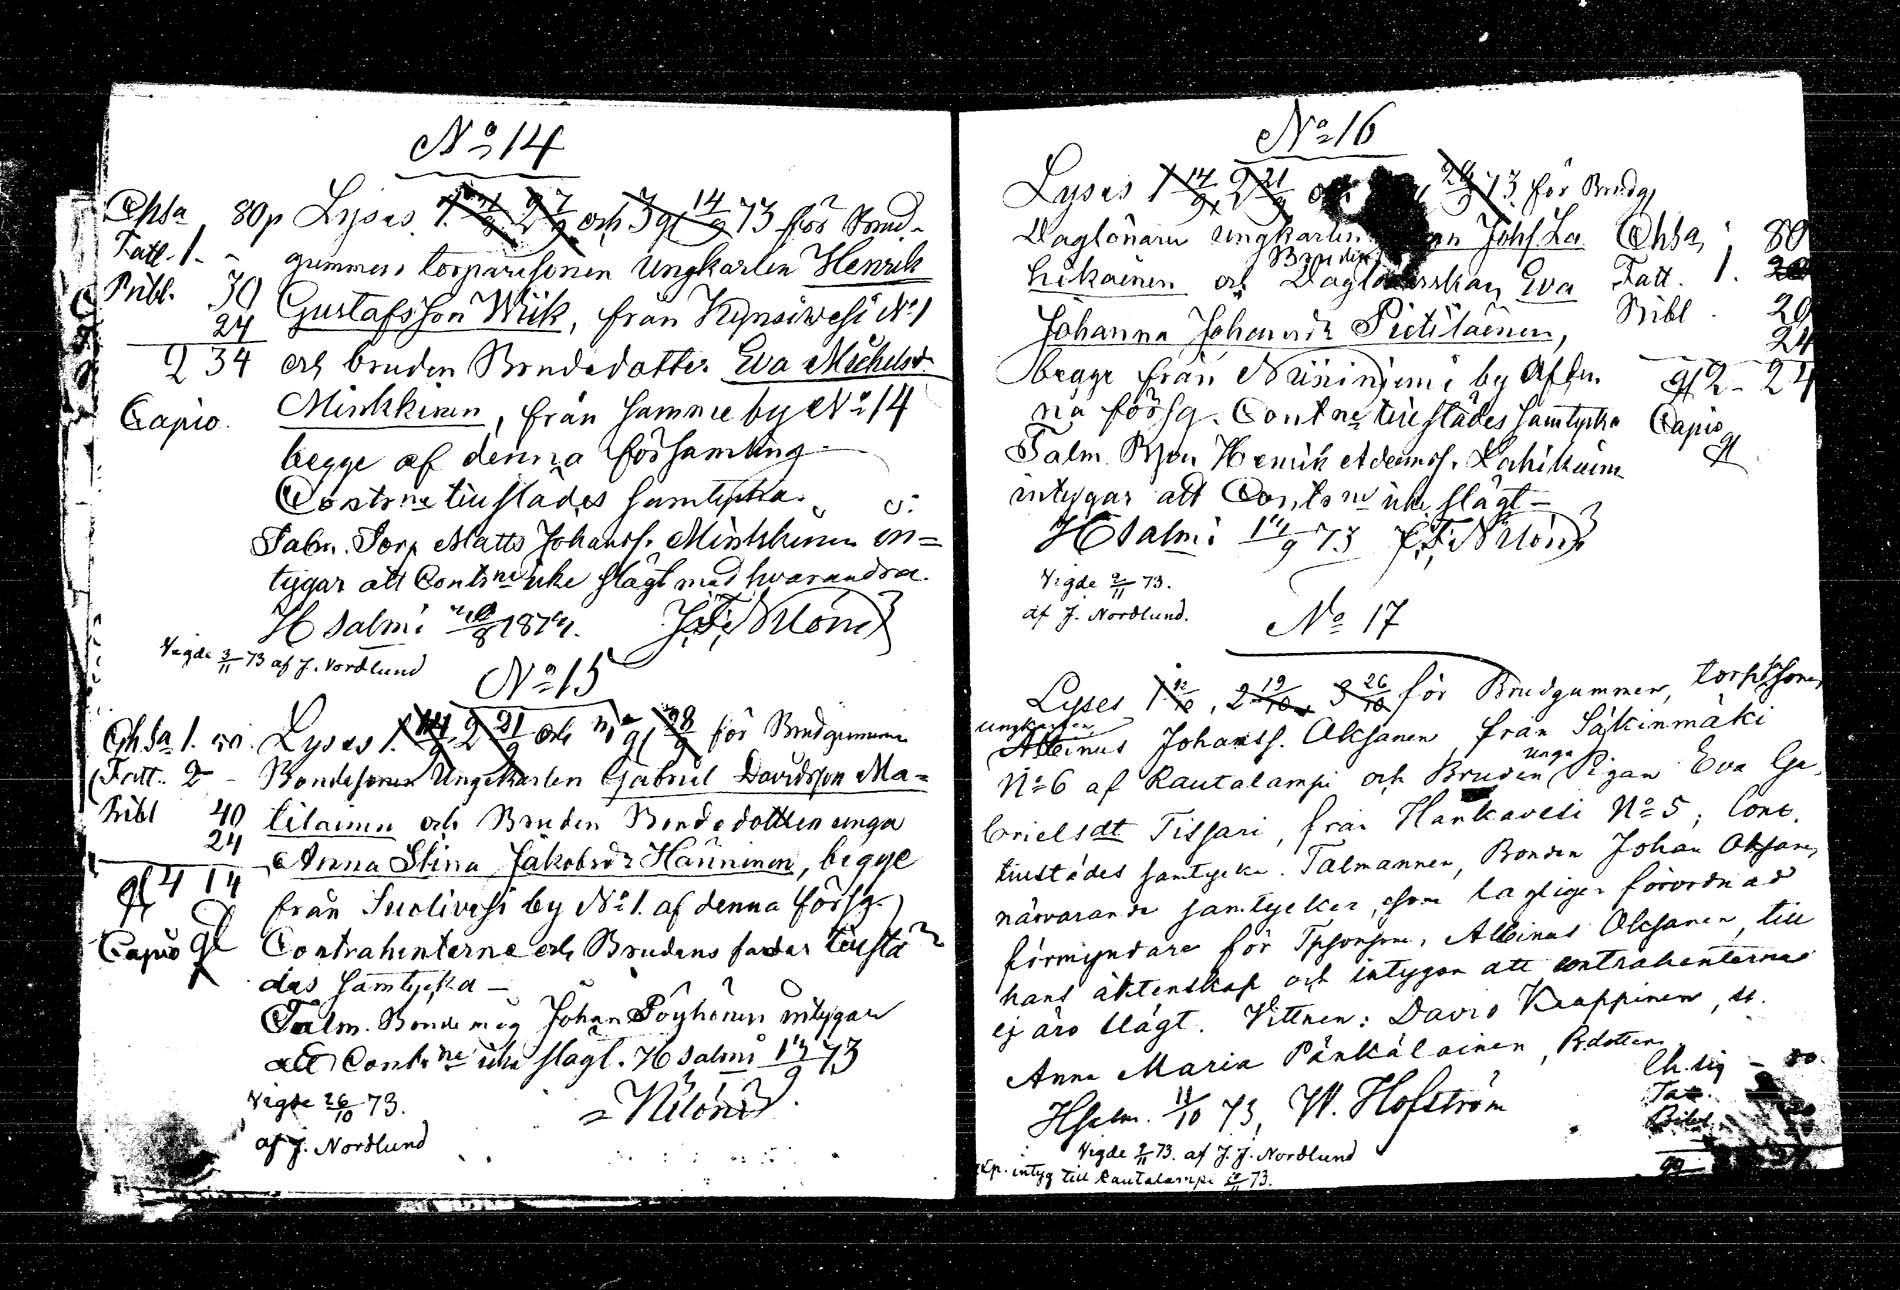 No 14
Chsa 80p Lyses 1. 2 7/9 och 3 gl 14/9 73 för Brud-
Fatt. 1. - gummen torparesonen Ungkarlen Henrik
Bibl. 30 Gustafsson Wiik, från Kynsiwesi No 1
24
2 34 och bruden Bondedotter Eva Michelsdr
Capio. Minkkinen, från samme by No 14
begge af denna församling
Contrne tillstädes samtycka.
Talm. Torp Matts Johanss. Minkkinen in=
tygar att Contrne icke slägt med hvarandra.
HSalmi J.F. Nilonius
Vigde 3/11 73 af J. Nordlund
No 15
Chsa 1. Lyses 1. 14/9 2 21/9 och 28/9 för Brudgummen
Fatt. 2 - Bondesonen Ungkarlen Gabriel Davidsson Ma=
Bibl 40 tilainen och Bruden Bondedottren unga
24 Anna Stina Jakobsdr Hänninen, begge
4 14 från Suolivesi by No 1. af denna försg.
Capio gl Contrahenterne och Brudens fader tillstä
des samtycka -
Talm. Bonde måg Johan Pöyhönen intygar
att Contrne icke slägt. HSalmi 14/9 73
Vigde 26/10 73. = Nilonius
af J. Nordlund
No 16
Lyses 1 14/9, 2 21/9 73 för Brudg
Daglönaren Ungkarlen Johs. La Chsa 80
Bruden
hikainen och Daglönerskan Eva Fatt. 1. 20
Johanna Johansdr Pietiläinen, Bibl. 20
24
begge från Niininiemi by af den- 2 - 24
na försg. Contrne tillstädes samtycka Capio
Talm. Bon Henrik Adamss. Lahikainen gl
intygar att Contrne icke slägt -
HSalmi 14/9 73 J.F. Nilonius
Vigde 2/11 73.
af J. Nordlund.
No 17
Lyses 1 12/10, 2 19/10, 3 26/10 för Brudgummen, torpssonen
ungkarlen
Albinus Johanss. Oksanen, från Säkinmäki
unga
No 6 af Rautalampi och Bruden Pigan Eva Ga-
brielsdt Tissari, från Hankavesi No 5; Cont.
tillstädes samtycka. Talmannen, Bonden Johan Oksanen,
närvarande samtycker, som lagligen förordnad
förmyndare för Tpsonson, Albinus Oksanen, till
hans äktenskap och intygar att contrahenterna
ej äro slägt. Vittnen: David Kaappinen, st.
Anna Maria Pänkäläinen, Bdotter.
HSalm. 11/10 73, W. Hofström Ch.sig - 80
Fat.
Bibel
Vigde 2/11 73. af J. J. Nordlund
Exp. intyg till Rautalampi 73.